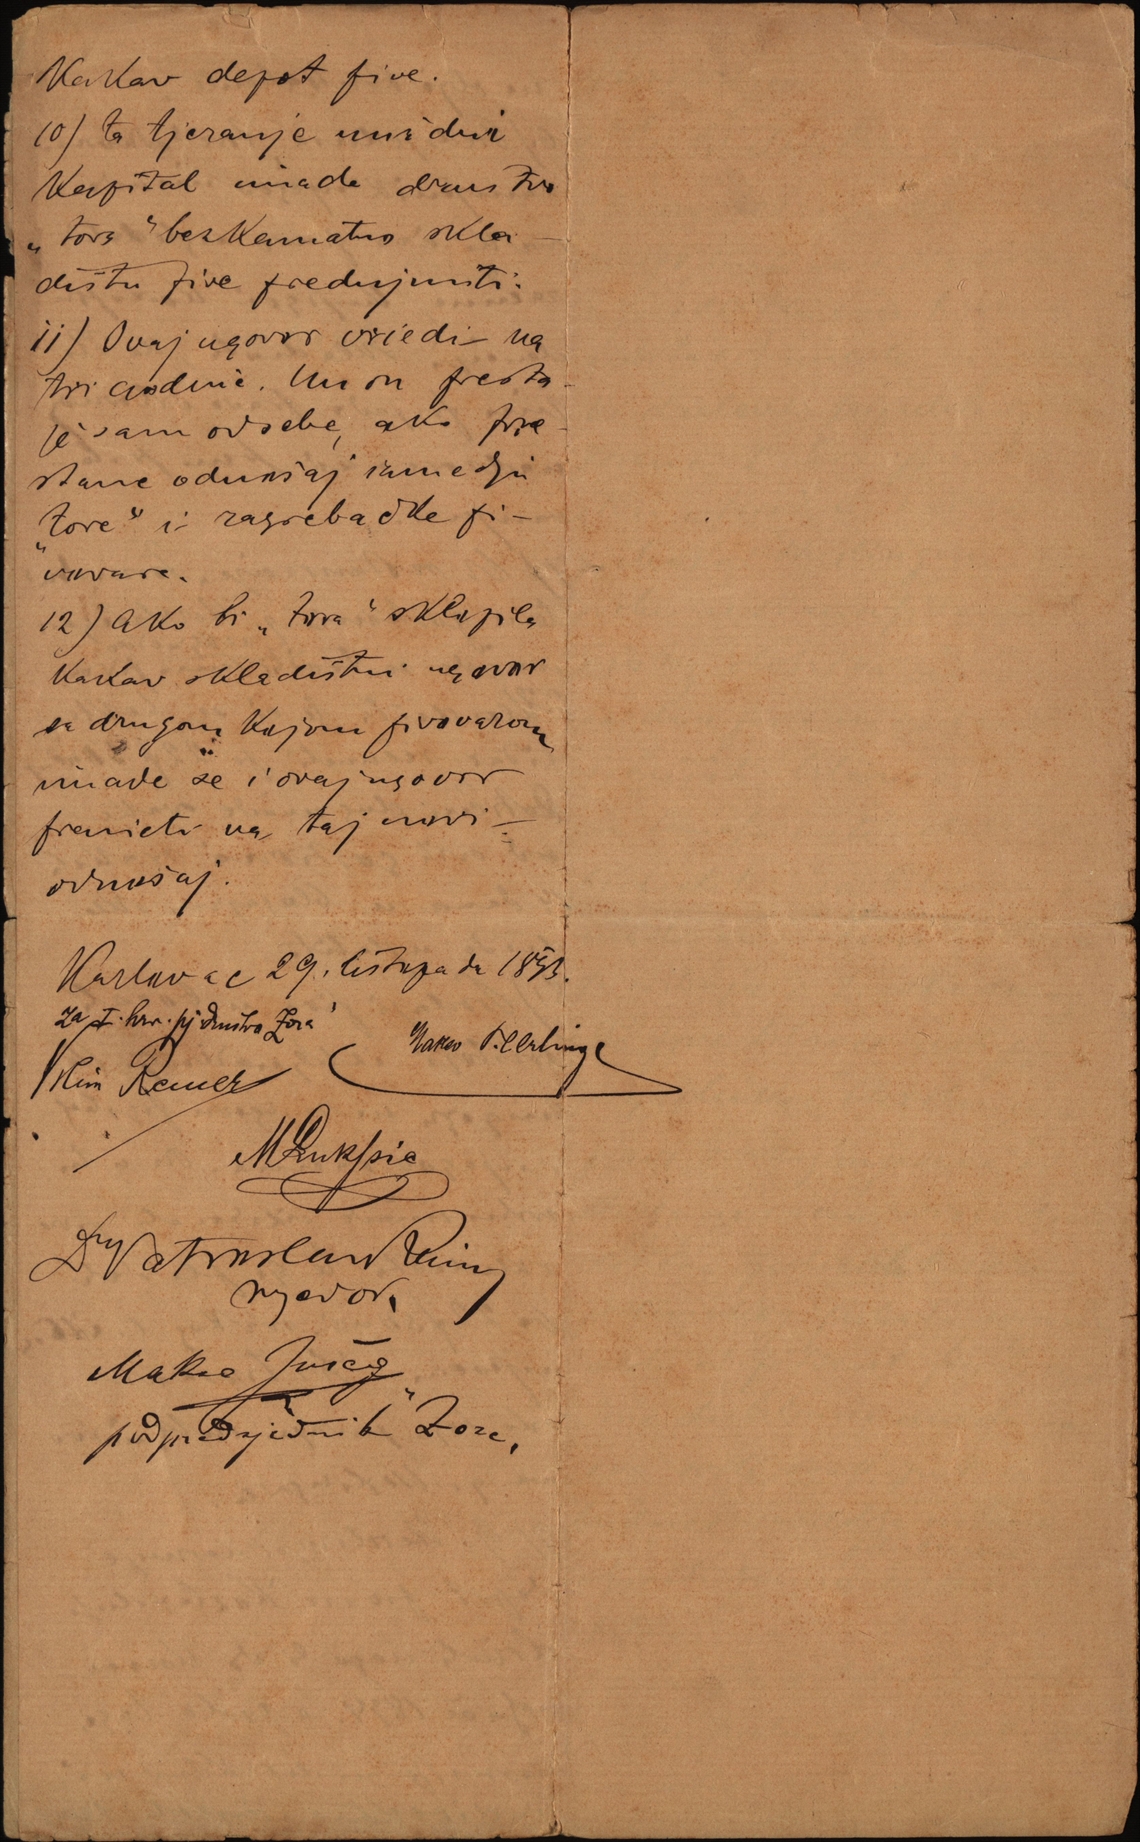 Kakav depot pive.
10) Za tjeranje nuždni
Kapital imade društvo
„Zora“ bezkamatno skla-
dištu pive predujmiti.
11) Ovaj ugovor vriedi na
tri godine. On presta-
je sam odsebe, ako pre-
stane odnošaj izmedju
„Zore“ i zagrebačke pi-
vovare.
12) Ako bi „Zora“ sklopila
kakav skladištni ugovor
sa drugom kojom pivovarom
imade se i ovaj ugovor
prenieti na taj novi
odnošaj.
Karlovac 29. listopada 1893.
Za I. hrv. pj. društvo Zora“
M Lukšić
Dr Vatroslav
Makso
podpredsjednik „Zore“